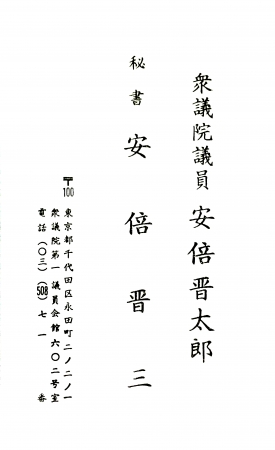 衆議院議員 安倍晋太郎
秘書 安倍晋三
〒100 東京都千代田区永田町二ノ二ノ一
衆議院第一議員会館六〇二号室
電話(〇三)(508)七一 番